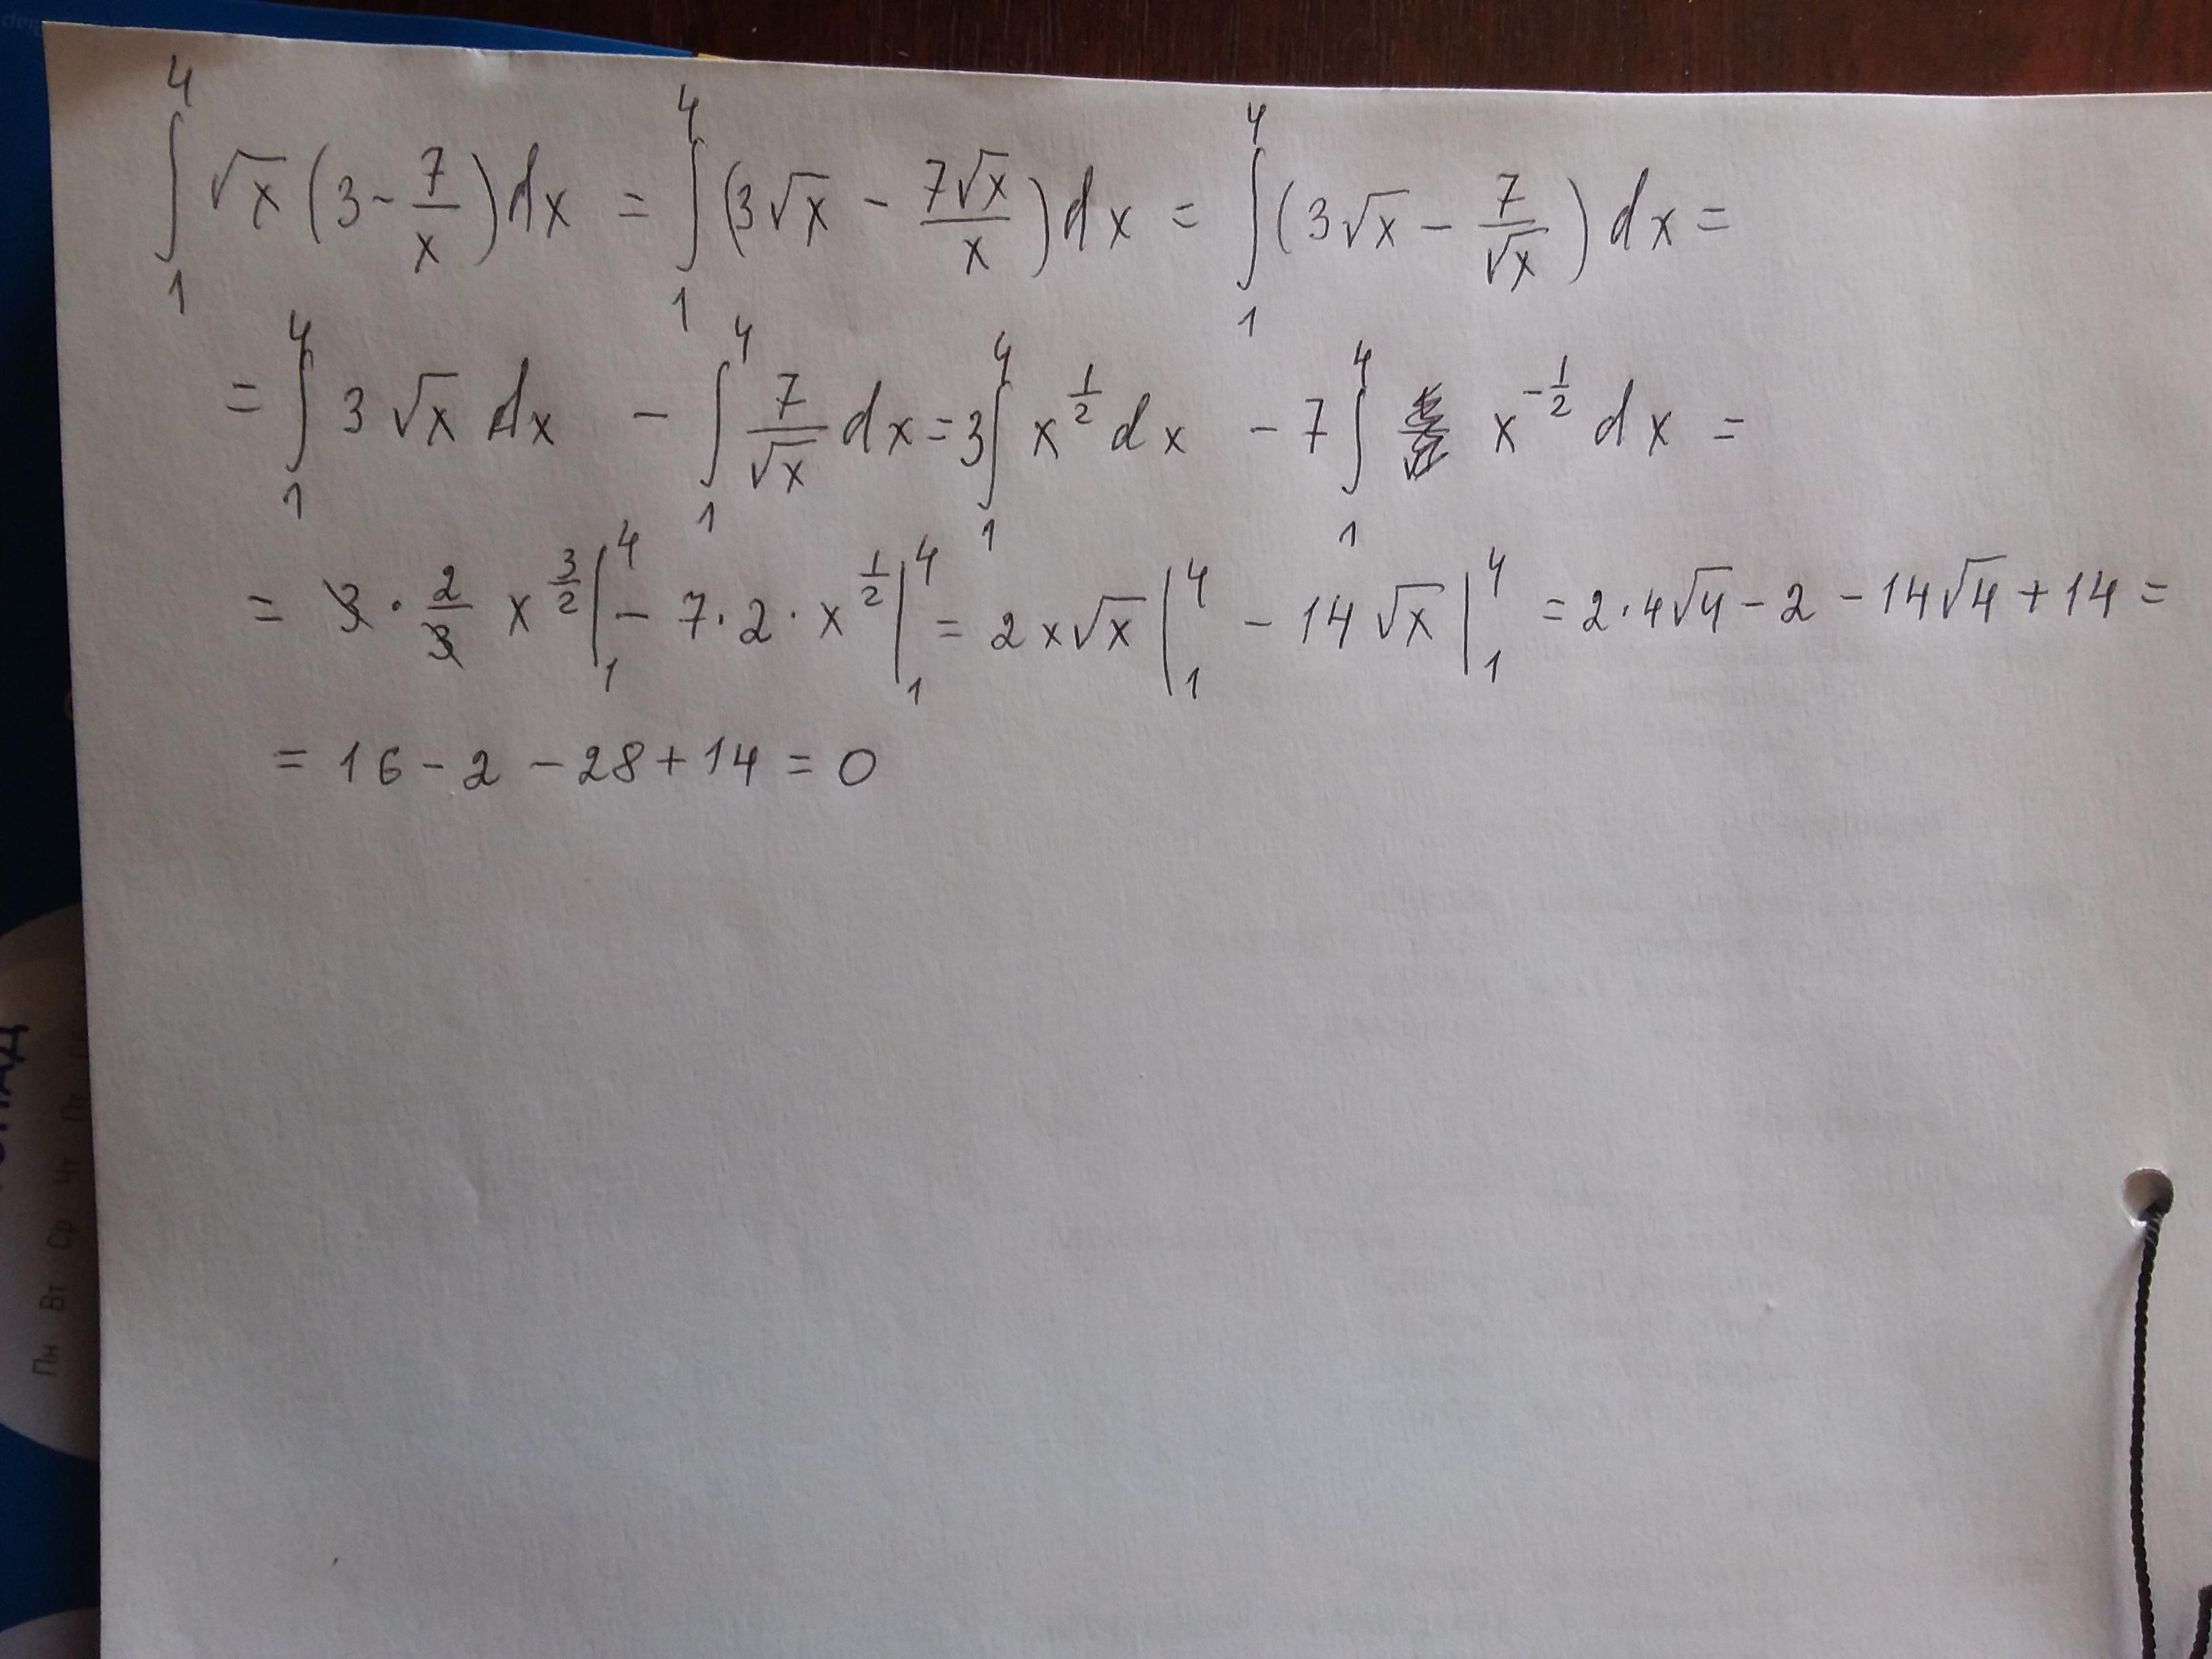 ∫₁⁴ √x (3 - 7/x) dx = ∫₁⁴ (3√x - 7√x/x) dx = ∫₁⁴ (3√x - 7/√x) dx =
= ∫₁⁴ 3√x dx - ∫₁⁴ 7/√x dx = 3∫₁⁴ x^(1/2) dx - 7∫₁⁴ x^(-1/2) dx =
= 3 · 2/3 x^(3/2) |₁⁴ - 7 · 2 · x^(1/2) |₁⁴ = 2x√x |₁⁴ - 14√x |₁⁴ = 2·4√4 - 2 - 14√4 + 14 =
= 16 - 2 - 28 + 14 = 0
Пн Вт Ср Чт Пт